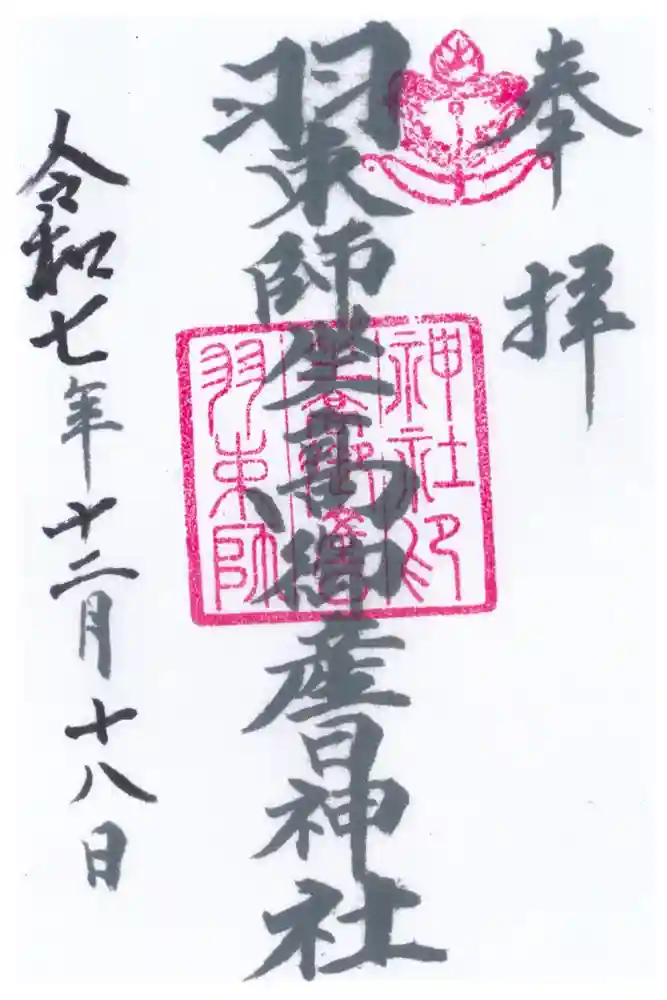 奉拝
羽束師坐高御産日神社
令和七年十二月十八日
羽束師
神社印